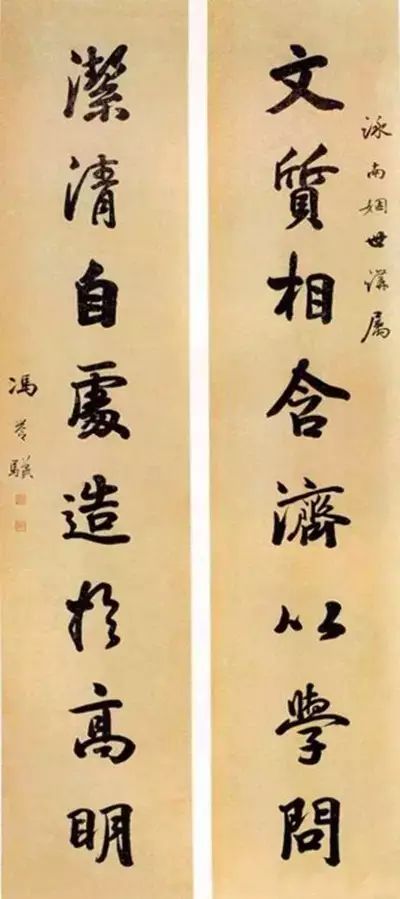 泳南姻世講屬
文質相含濟以學問
潔清自處造於高明
馮譽驥